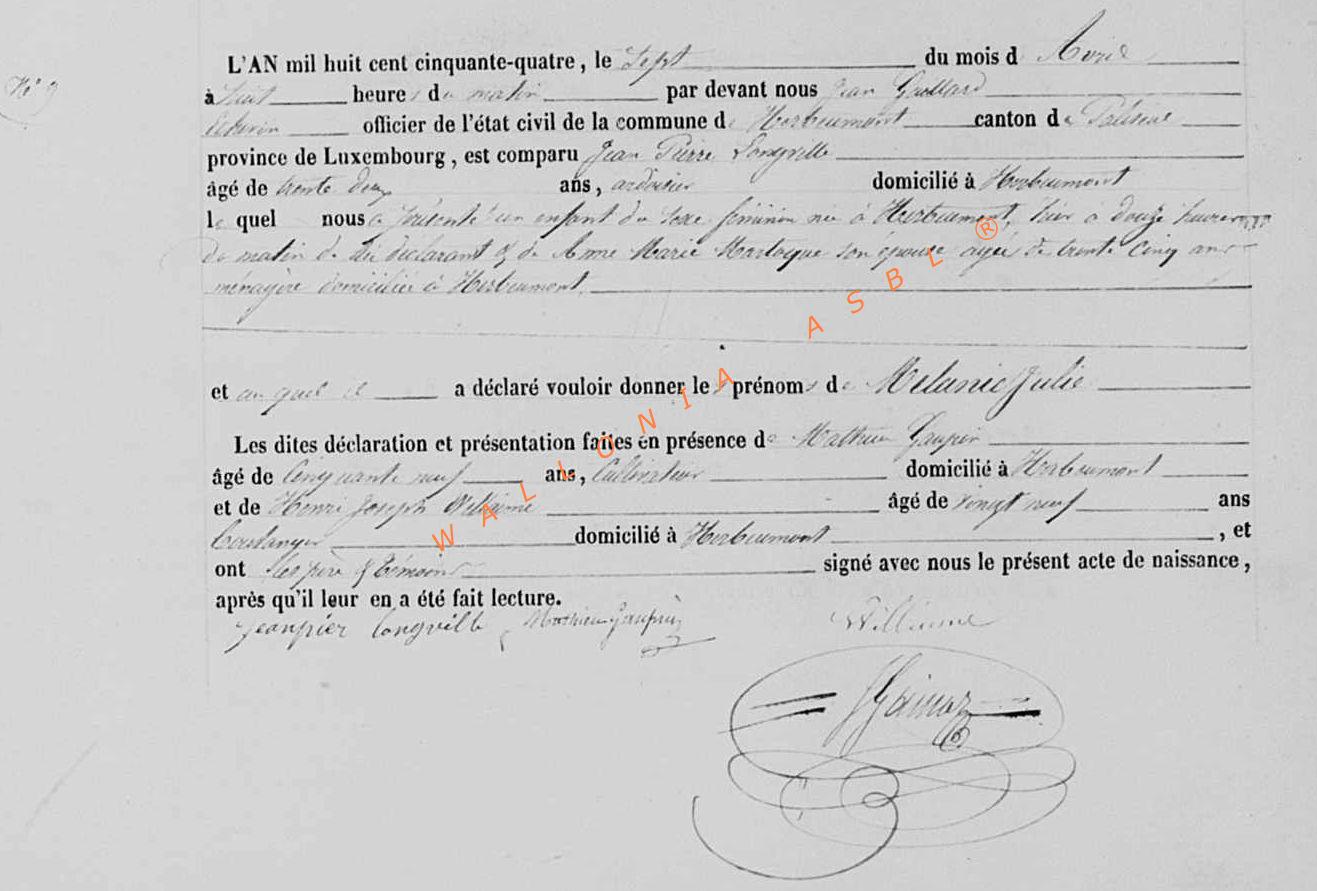 N° 9
L'AN mil huit cent cinquante-quatre, le Sept du mois d Avril
à huit heures du matin par devant nous Jean
officier de l'état civil de la commune de Herbeumont canton de Paliseul
province de Luxembourg, est comparu Jean Pierre Longville
âgé de trente deux ans, ardoisier domicilié à Herbeumont
lequel nous a présenté un enfant du sexe féminin née à Herbeumont, hier à douze heures
du matin de lui déclarant & de Anne Marie son épouse agée de trente cinq ans
ménagère domiciliée à Herbeumont.
et auquel il a déclaré vouloir donner les prénoms de Melanie Julie
Les dites déclaration et présentation faites en présence de Mathieu Gaupin
âgé de Cinquante neuf ans, Cultivateur domicilié à Herbeumont
et de Henri Joseph Willième âgé de vingt neuf ans
boulanger domicilié à Herbeumont, et
ont les père & témoins signé avec nous le présent acte de naissance,
après qu'il leur en a été fait lecture.
jeanpier longville Mathieu Gaupin Willieme
WALLONIA ASBL ®